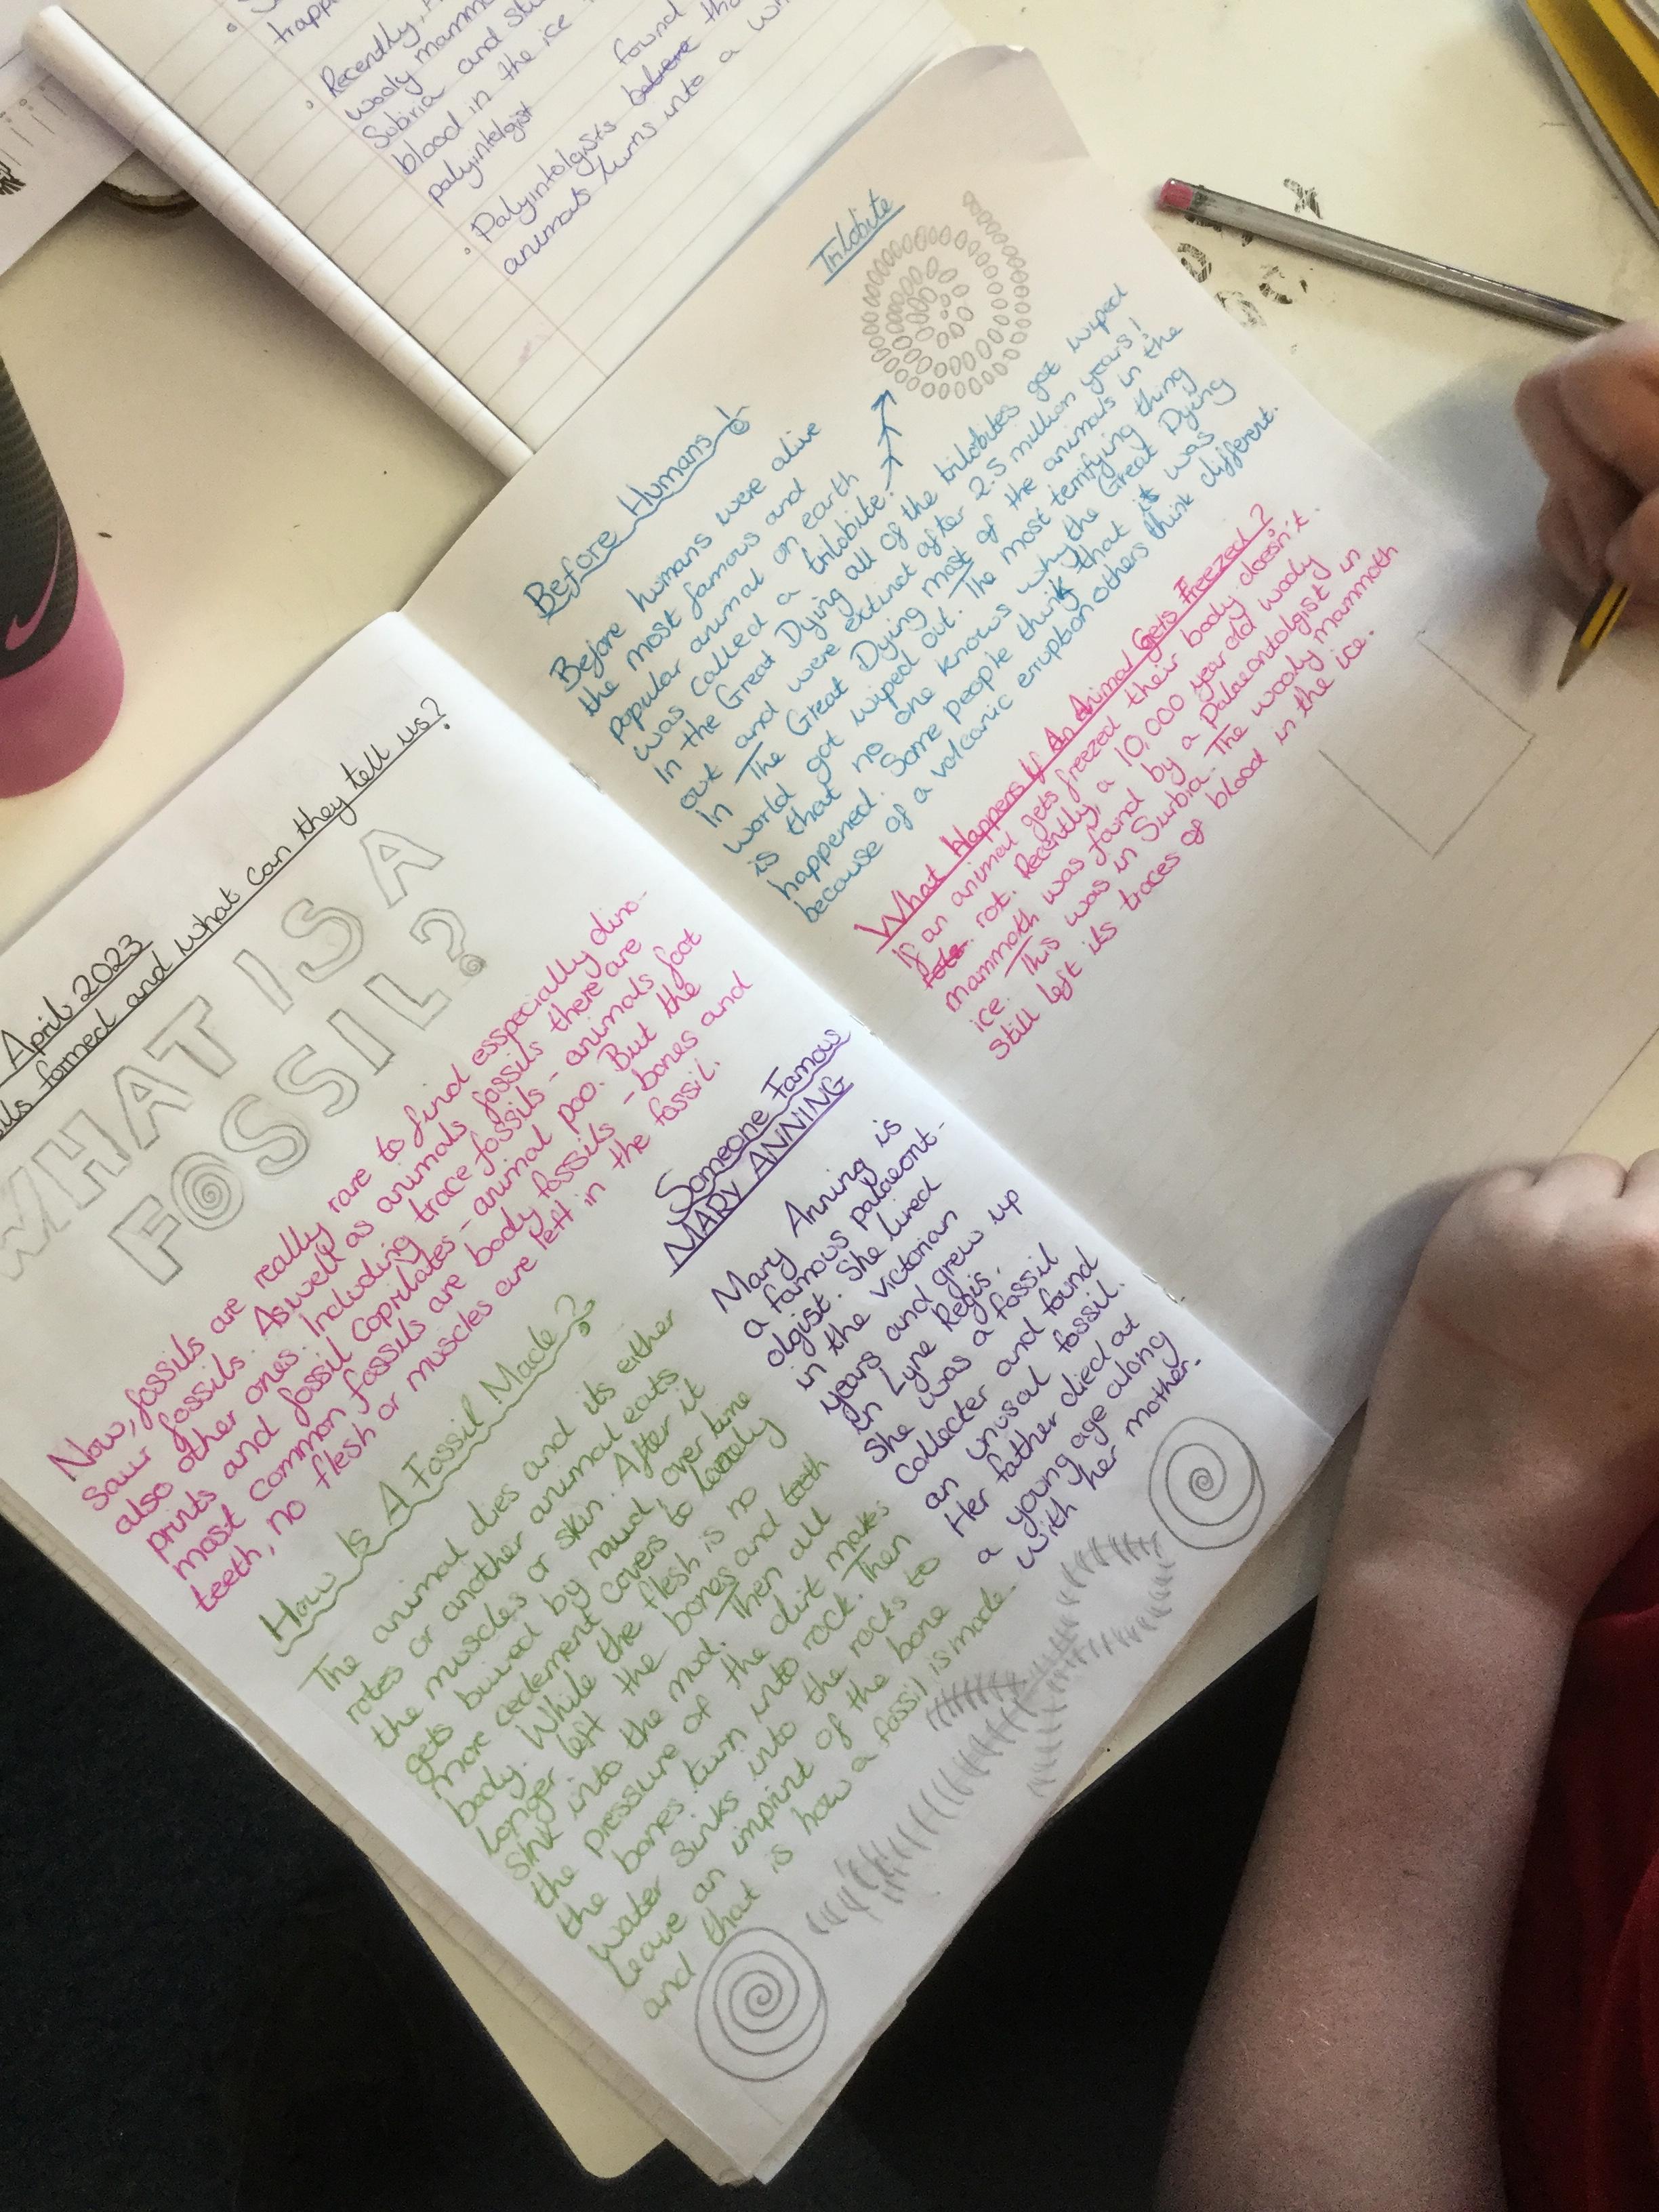 April 2023
formed and what can they tell us?
WHAT IS A
FOSSIL?
Now, fossils are really rare to find esspecially dino-
saur fossils. As well as animals fossils there are
also other ones. Including trace fossils - animals foot
prints and fossil coprilates - animal poo. But the
most common fossils are body fossils - bones and
teeth, no flesh or muscles are left in the fossil.
How Is A Fossil Made?
The animal dies and its either
rotes or another animal eats
the muscles or skin. After it
gets buired by mud, over time
more cedement covers to
body. While the flesh is no
longer left the bones and teeth
sink into the mud. Then all
the pressure of the dirt makes
the bones turn into rock. Then
water sinks into the rocks to
leave an imprint of the bone
and that is how a fossil is made.
Someone Famous
MARY ANNING
Mary Anning is
a famous palaeont-
olgist. She lived
in the victorian
years and grew up
in Lyne Regis.
She was a fossil
collecter and found
an unusal fossil.
Her father died at
a young age along
with her mother.
Before Humans!
Before humans were alive
the most famous and
popular animal on earth
was called a trilobite.
In the Great Dying all of the trilobites got wiped
out and were extinct after 2.5 million years!
In The Great Dying most of the animals in the
world got wiped out. The most terrifying thing
is that no one knows why the Great Dying
happened. Some people think that it was
because of a volcanic erruption others think different.
Trilobite
What Happens If An Animal Gets Freezed?
If an animal gets freezed their body doesn't
rot. Recently, a 10,000 year old woody
mammoth was found by a Palaeontologist in
ice. This was in Surbia. The woody mammoth
still left its traces of blood in the ice.
trapp
Recently,
wooly mamm
Sobiria and
blood in the ice
palyintelgist
found
Palyintolgists before
animals turns into a